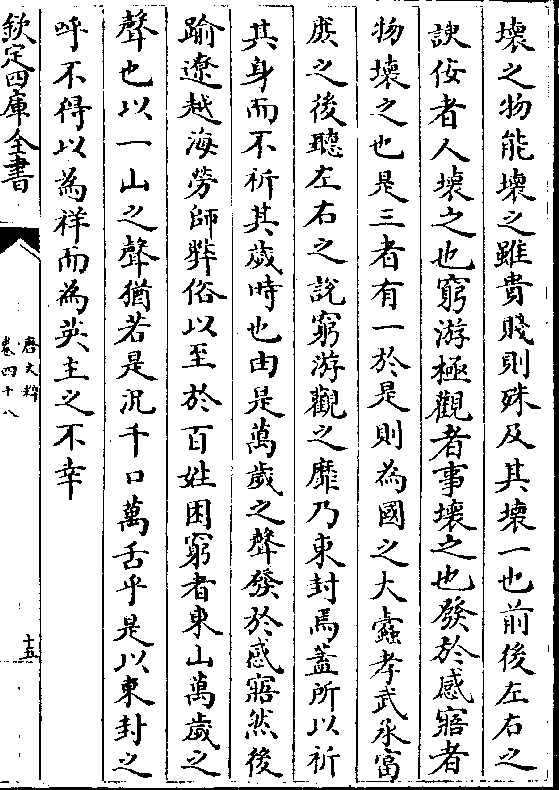 壞之物能壞之雖貴賤則殊及其壞一也前後左右之
諛佞者人壞之也窮游極觀者事壞之也發於感寤者
物壞之也是三者有一於是則為國之大蠧孝武承富
庶之後聽左右之說窮游觀之靡乃東封焉蓋所以祈
其身而不祈其歲時也由是萬歲之聲發於感寤然後
踰遼越海勞師弊俗以至於百姓困窮者東山萬歲之
聲也以一山之聲猶若是況千口萬舌乎是以東封之
呼不得以為祥而為英主之不幸
欽定四庫全書
唐文粹
卷四十八
十五